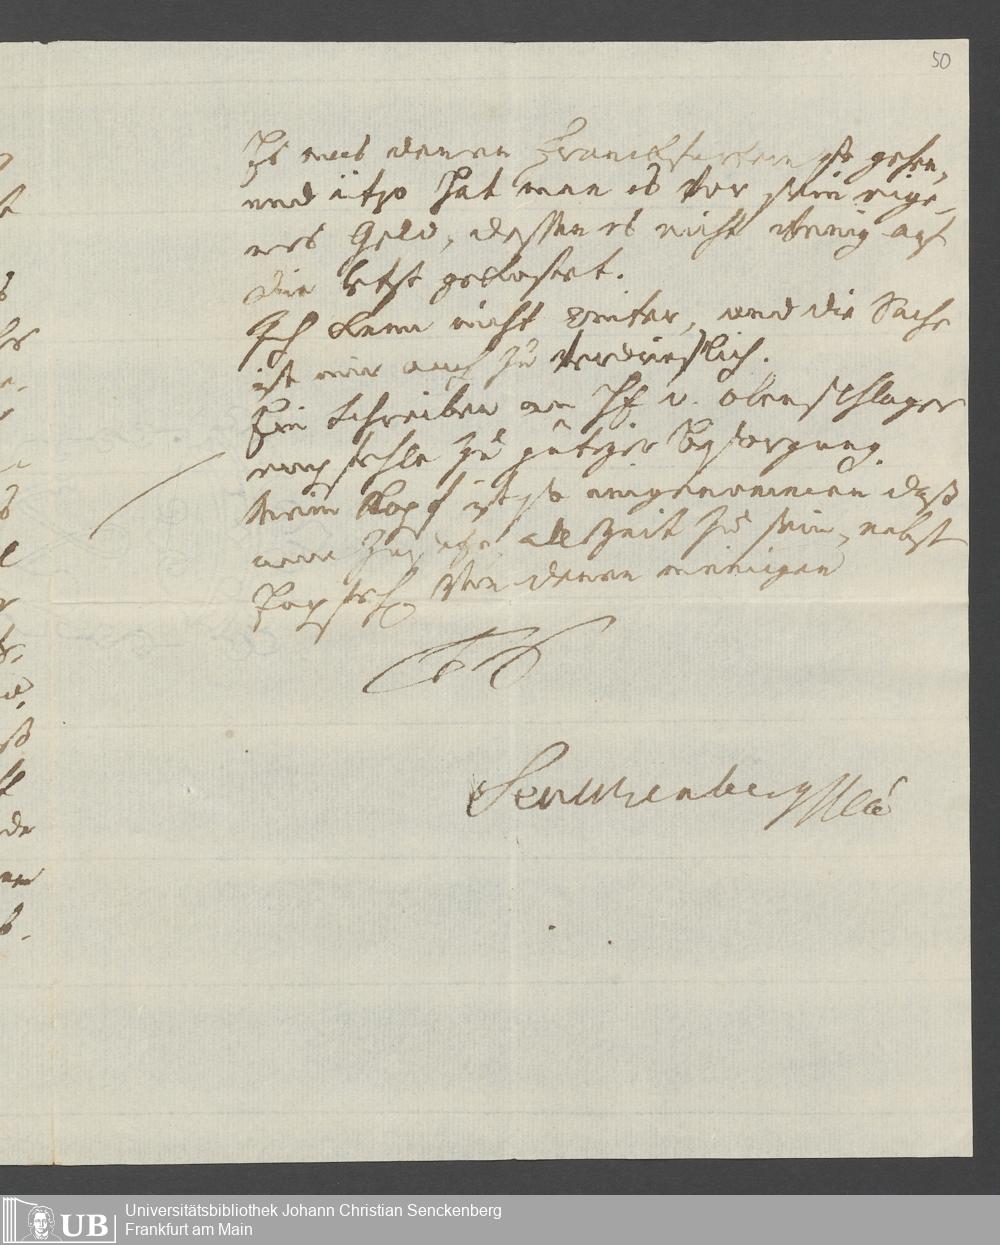 50
Es mus denen Franckfurtern so gehen,
und itzo hat man es vor sein eige-
nes Geld, dessen es nicht wenig auf
die letzt gekostet.
Ich kann nicht weiter, und die Sache
ist mir auch zu verdrieslich.
Ein Schreiben an H. v. Olenschlager
empfehle zu gütiger Besorgung.
Mein Kopf ist so eingenommen daß
nebst
von denen meinigen
Senckenberg
Universitätsbibliothek Johann Christian Senckenberg
UB Frankfurt am Main